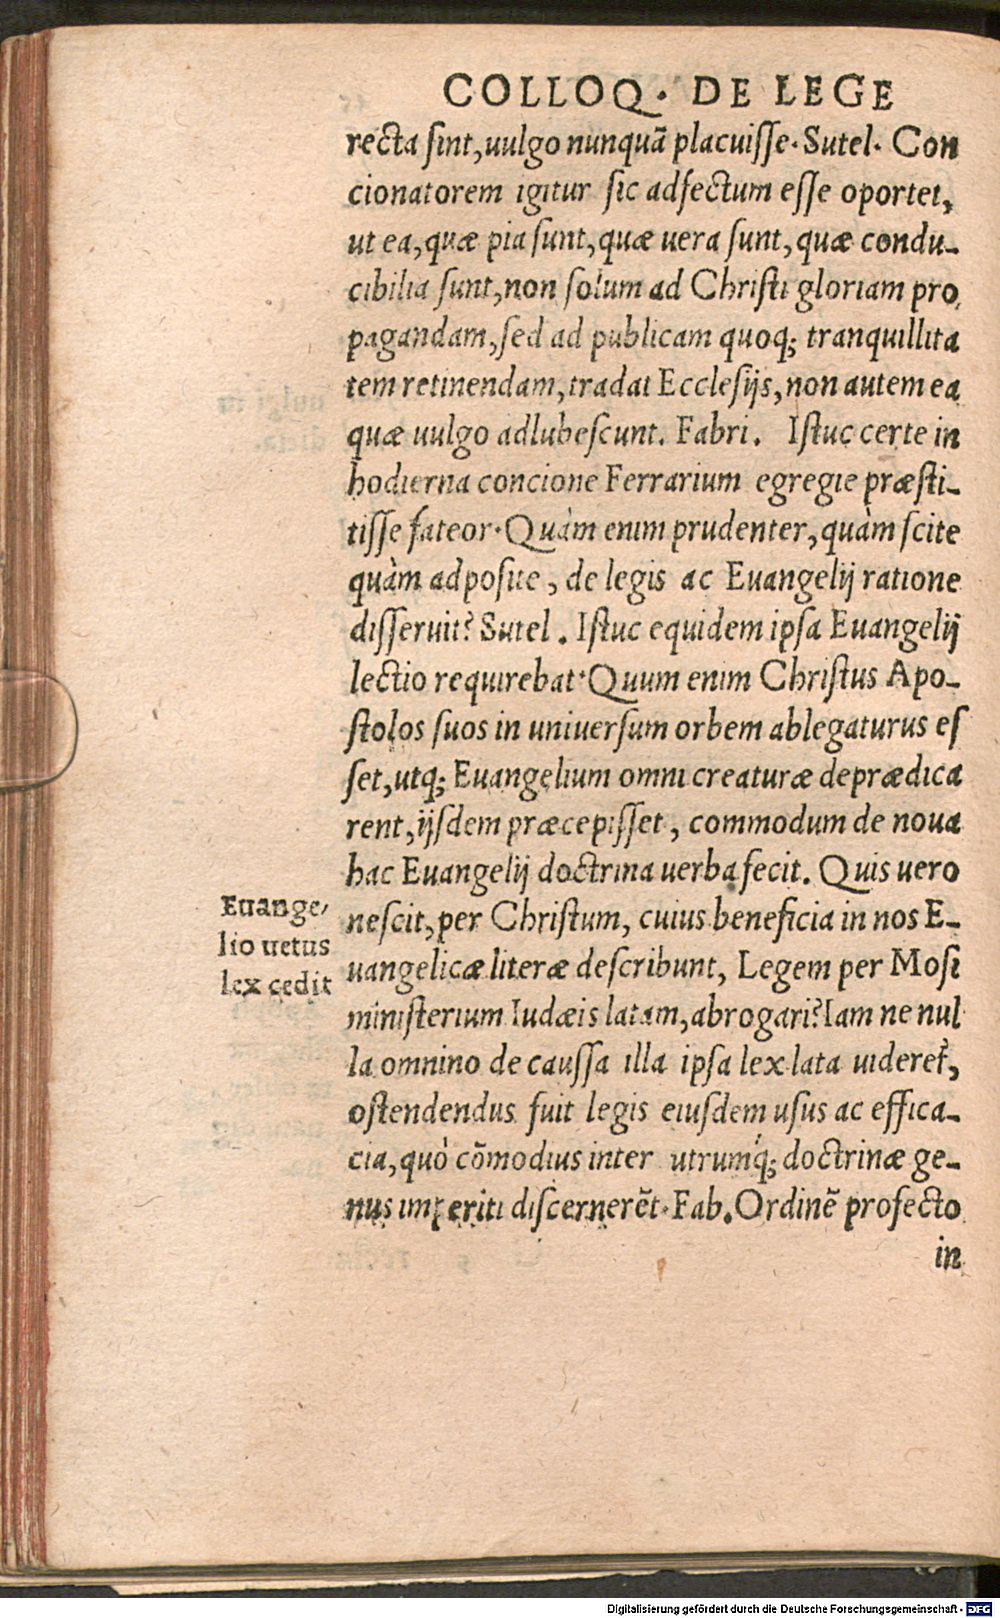 COLLOQ. DE LEGE
recta sint, uulgo nunquā placuisse. Sutel. Con
cionatorem igitur sic adfectum esse oportet,
ut ea, quæ pia sunt, quæ uera sunt, quæ condu-
cibilia sunt, non solum ad Christi gloriam pro
pagandam, sed ad publicam quoq; tranquillita
tem retinendam, tradat Ecclesijs, non autem ea
quæ uulgo adlubescunt. Fabri. Istuc certe in
hodierna concione Ferrarium egregie præsti-
tisse fateor. Quàm enim prudenter, quàm scite
quàm adposite, de legis ac Euangelij ratione
disseruit? Sutel. Istuc equidem ipsa Euangelij
lectio requirebat. Quum enim Christus Apo-
stolos suos in uniuersum orbem ablegaturus es
set, utq; Euangelium omni creaturæ deprædica
rent, ijsdem præcepisset, commodum de noua
hac Euangelij doctrina uerba fecit. Quis uero
nescit, per Christum, cuius beneficia in nos E-
uangelicæ literæ describunt, Legem per Mosi
ministerium Iudæis latam, abrogari? Iam ne nul
la omnino de caussa illa ipsa lex lata uideret̃,
ostendendus fuit legis eiusdem usus ac effica-
cia, quò cōmodius inter utrumq́; doctrinæ ge-
nus imperiti discernerēt. Fab. Ordinē profecto
in
Euange-
lio uetus
lex cedit
Digitalisierung gefördert durch die Deutsche Forschungsgemeinschaft - DFG